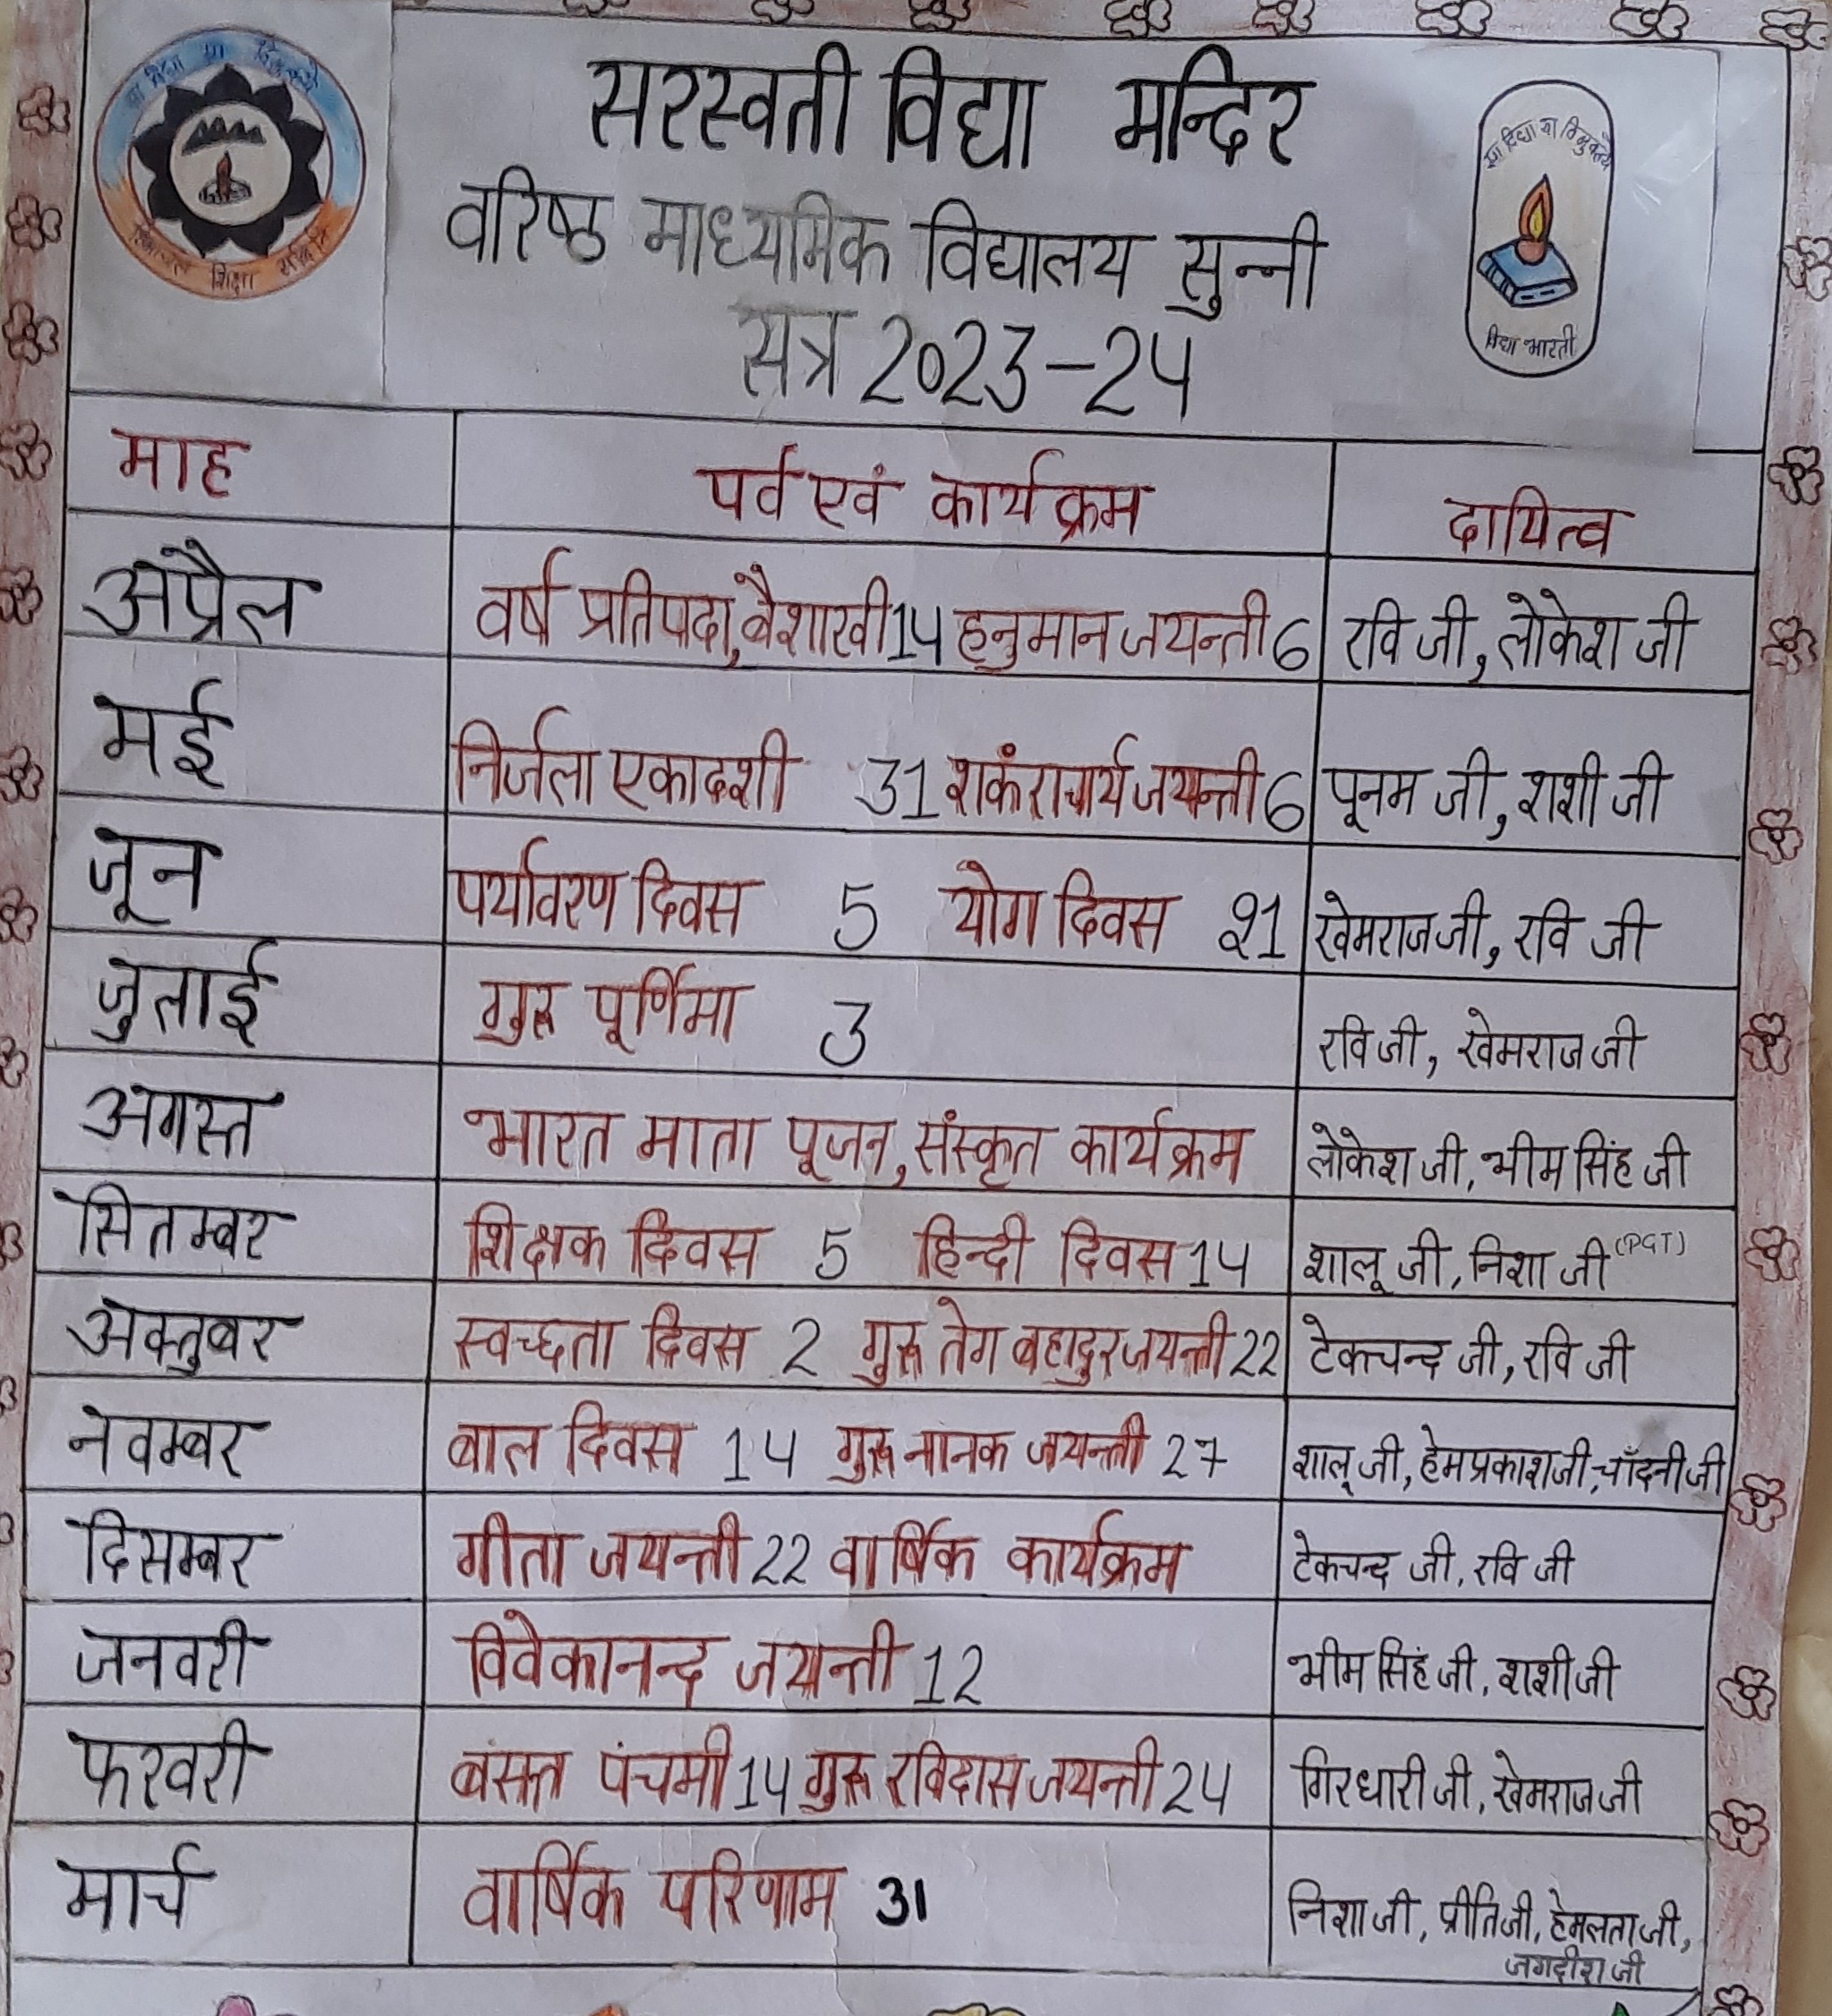 सरस्वती विद्या मन्दिर
वरिष्ठ माध्यमिक विद्यालय सुन्नी
सत्र 2023-24
सा विद्या या विमुक्तये
हिमाचल शिक्षा समिति
सा विद्या या विमुक्तये
विद्या भारती
माह पर्व एवं कार्यक्रम दायित्व
अप्रैल वर्ष प्रतिपदा, बैशाखी 14 हनुमान जयन्ती 6 रवि जी, लोकेश जी
मई निर्जला एकादशी 31 शकंराचार्य जयन्ती 6 पूनम जी, शशी जी
जून पर्यावरण दिवस 5 योग दिवस 21 खेमराज जी, रवि जी
जुलाई गुरू पूर्णिमा 3 रवि जी, खेमराज जी
अगस्त भारत माता पूजन, संस्कृत कार्यक्रम लोकेश जी, भीम सिंह जी
सितम्बर शिक्षक दिवस 5 हिन्दी दिवस 14 शालू जी, निशा जी (PGT)
अक्तुबर स्वच्छता दिवस 2 गुरू तेग बहादुर जयन्ती 22 टेकचन्द जी, रवि जी
नवम्बर बाल दिवस 14 गुरू नानक जयन्ती 27 शालू जी, हेमप्रकाश जी, चाँदनी जी
दिसम्बर गीता जयन्ती 22 वार्षिक कार्यक्रम टेकचन्द जी, रवि जी
जनवरी विवेकानन्द जयन्ती 12 भीम सिंह जी, शशी जी
फरवरी बंसन्त पंचमी 14 गुरू रविदास जयन्ती 24 गिरधारी जी, खेमराज जी
मार्च वार्षिक परिणाम 31 निशा जी, प्रीति जी, हेमलता जी,
जगदीश जी